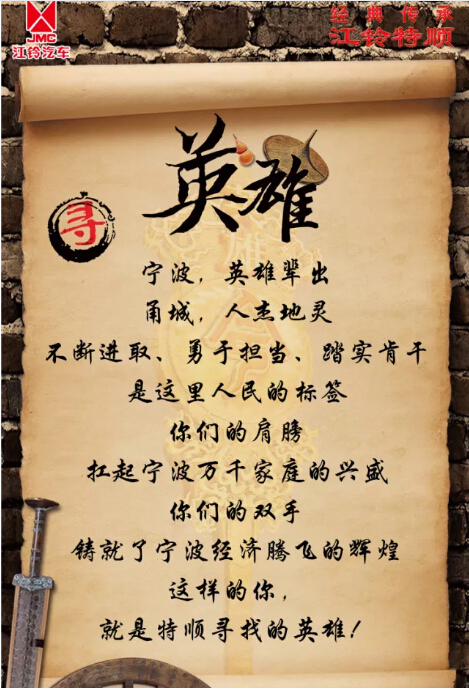 JMC
江铃汽车
经典传承
江铃特顺
寻
英雄
宁波，英雄辈出
甬城，人杰地灵
不断进取、勇于担当、踏实肯干
是这里人民的标签
你们的肩膀
扛起宁波万千家庭的兴盛
你们的双手
铸就了宁波经济腾飞的辉煌
这样的你，
就是特顺寻找的英雄！